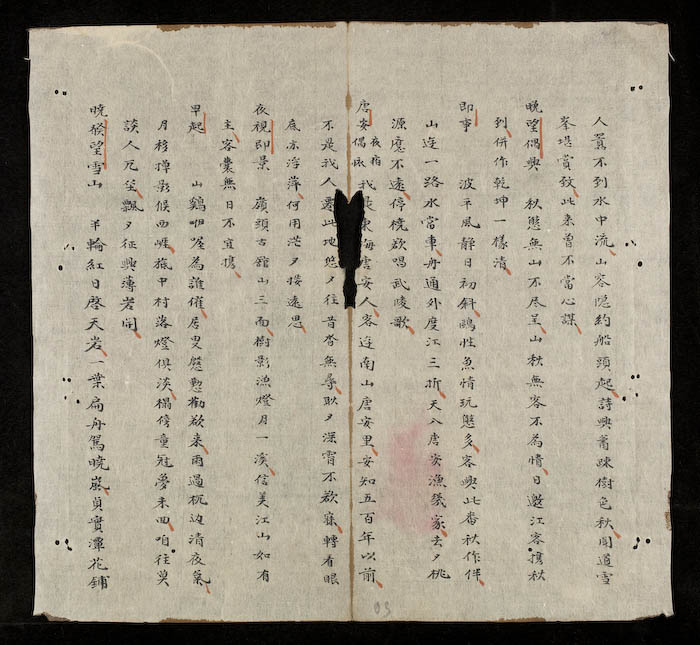 人不到水中流山容隱約船頭起詩興蕭疎樹色秋聞道雪
峯堪賞致此来曾不當心謀
晚望偶興 秋態無山不尽呈山秋無客不為情日邀江客携秋
到併作乾坤一樣清
即事 波平風靜日初斜鷗性魚情玩態多客與此番秋作伴
山迎一路水當車舟通外度江三折天入唐安漁幾家去夕桃
源應不遠停橈欲唱武陵歌
唐安夜泊偶成 我是東海唐安人客迎南山唐安里安知五百年以前
不是我人遷此地悠夕往昔杳無尋耿夕深宵不欲寐轉看眼
底亦浮萍何用茫夕接遠思
夜視即景 嶺頭古館山三面樹影漁燈月一溪信美江山如有
主客囊無日不宜携
早起 山鷄咿喔為誰催居叟慇懃勸欲来雨過枕边清夜氣
月移掉影候西崖旅中村落燈俱淡榻傍童冠夢未回咱往莫
談人冗飄夕征興薄岩開
曉發望雪山 半輪紅日啓天岩一葉扁舟駕曉嵐貞實潭花鋪